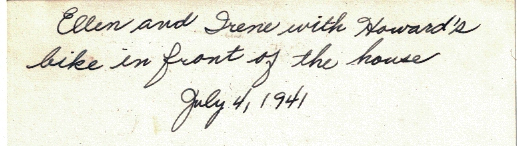 Ellen and Irene with Howard's
bike in front of the house
July 4, 1941